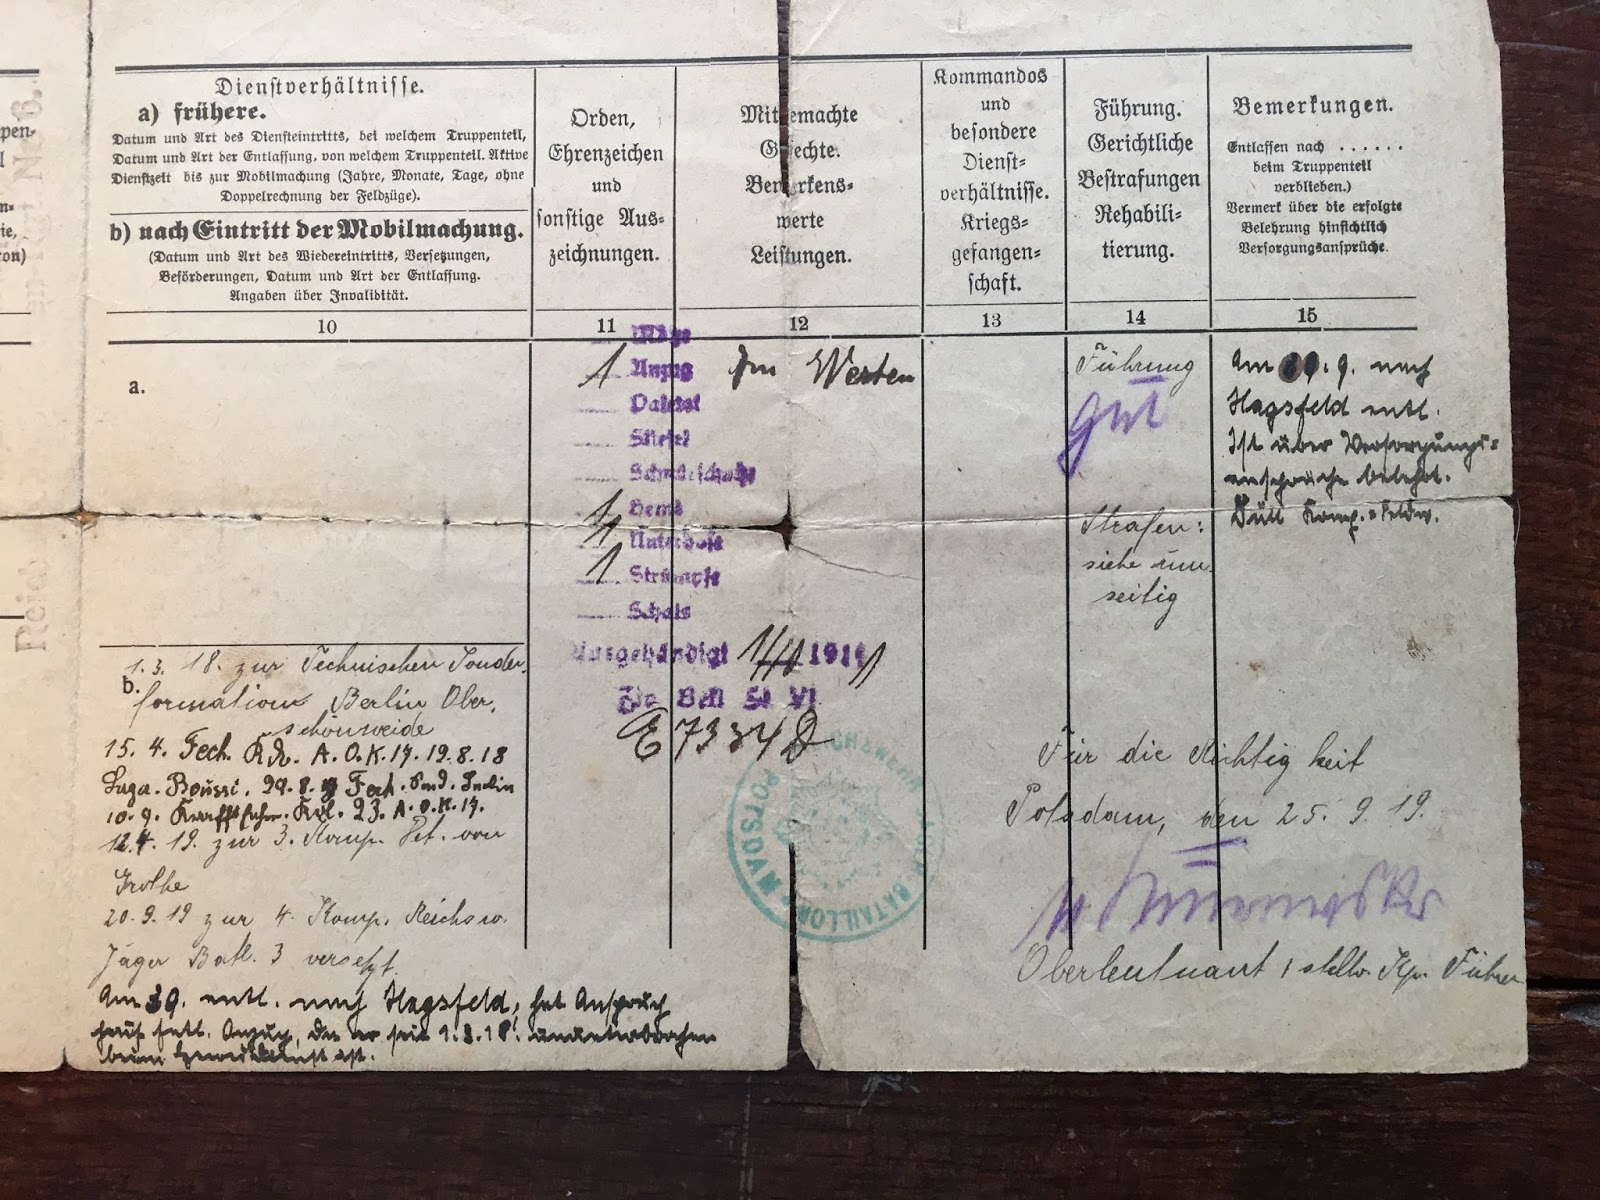 Dienstverhältnisse.
a) frühere.
Datum und Art des Diensteintritts, bei welchem Truppenteil,
Datum und Art der Entlassung, von welchem Truppenteil. Aktive
Dienstzeit bis zur Mobilmachung (Jahre, Monate, Tage, ohne
Doppelrechnung der Feldzüge).
b) nach Eintritt der Mobilmachung.
(Datum und Art des Wiedereintritts, Versetzungen,
Beförderungen, Datum und Art der Entlassung.
Angaben über Invalidität.
Orden,
Ehrenzeichen
und
sonstige Aus-
zeichnungen.
Mitgemachte
Gefechte.
Bemerkens-
werte
Leistungen.
Kommandos
und
besondere
Dienst-
verhältnisse.
Kriegs-
gefangen-
schaft.
Führung.
Gerichtliche
Bestrafungen
Rehabili-
tierung.
Bemerkungen.
Entlassen nach . . . . . .
beim Truppenteil
verblieben.)
Vermerk über die erfolgte
Belehrung hinsichtlich
Versorgungsansprüche.
10 11 12 13 14 15
a.
b.
1.3. 18. zur Technischen Sonder-
formation Berlin Ober-
schöneweide
15. 4. A.O.K. 17. 19.8.18
10.9. 23. A.O.K. 17.
19. zur 3. Komp. Det. von
Grothe
20.9.19 zur 4. Komp. Reichsw.
Jäger Batl. 3 versetzt.
Am entl. nach Hagsfeld, hat Anspruch
auf entl. Anzug, da er seit 1.3.18. ununterbrochen
beim ist.
Mütze
1 Anzug
Paletot
Stiefel
Schnürschuhe
1 Hemd
1 Unterhose
1 Strümpfe
Schals
Ausgehändigt 191
E 7334 D
Im Westen
POTSDAM BATAILLON
Führung
gut
Strafen:
siehe um-
seitig
Am 9. nach
Hagsfeld entl.
Ist über Versorgungs-
ansprüche belehrt.
Komp.-Feldw.
Für die Richtigkeit
Potsdam, den 25. 9. 19.
Oberleutnant u. stellv. Kp. Führer